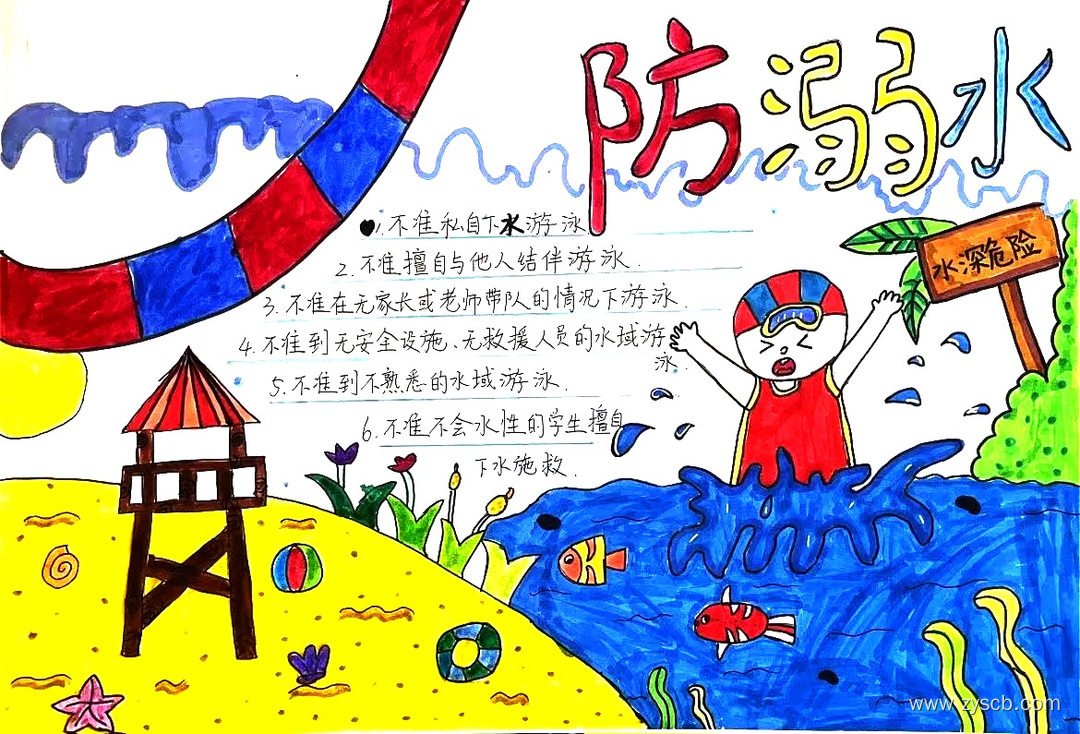 防溺水
1.不准私自下水游泳
2.不准擅自与他人结伴游泳.
3.不准在无家长或老师带队的情况下游泳.
4.不准到无安全设施、无救援人员的水域游
泳.
5.不准到不熟悉的水域游泳.
6.不准不会水性的学生擅自
下水施救.
水深危险
www.zyscb.com